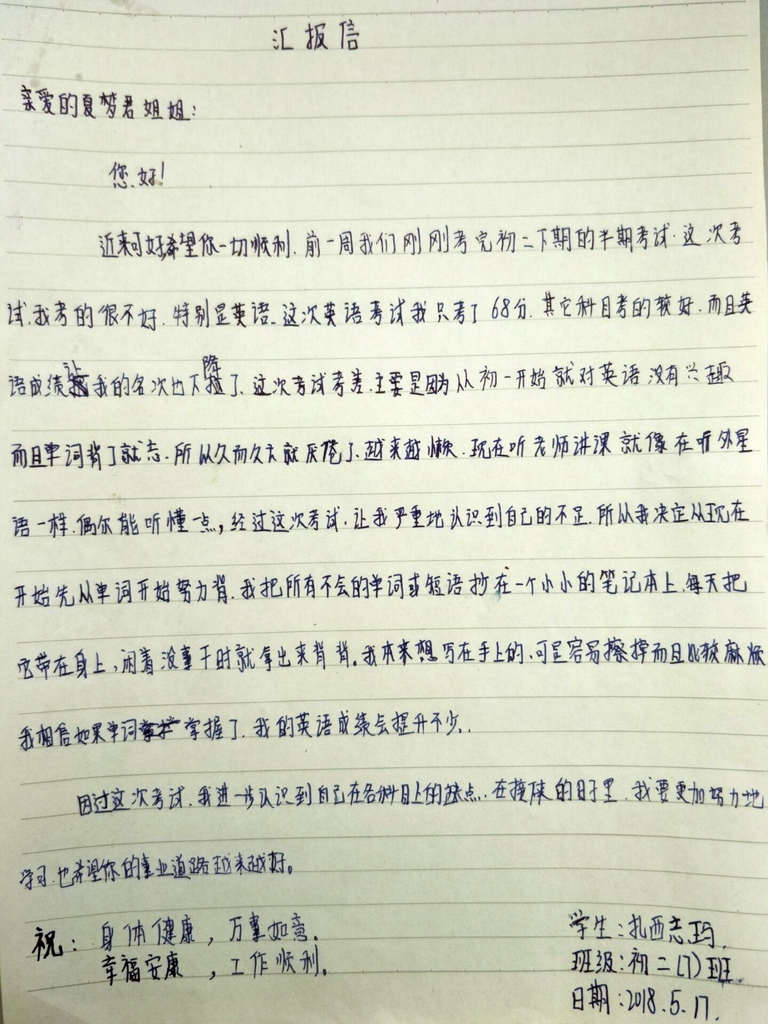 汇报信
亲爱的夏梦君姐姐：
您好！
近来可好希望你一切顺利.前一周我们刚刚考完初二下期的半期考试.这次考
试.我考的很不好.特别是英语.这次英语考试我只考了68分.其它科目考的较好.而且英
语成绩让我的名次也下降了.这次考试考差.主要是因为从初一开始就对英语没有兴趣
而且单词背了就忘.所以久而久之就厌倦了.越来越懒.现在听老师讲课就像在听外星
语一样.偶尔能听懂一点，经过这次考试.让我严重地认识到自己的不足.所以我决定从现在
开始先从单词开始努力背.我把所有不会的单词或短语抄在一个小小的笔记本上.每天把
它带在身上，闲着没事干时就拿出来背背。我本来想写在手上的.可是容易擦掉而且比较麻烦
我相信如果单词掌握了.我的英语成绩会提升不少..
因过这次考试.我进一步认识到自己在各科目上的缺点.在接下来的日子里.我要更加努力地
学习.也希望你的事业道路越来越好。
祝：身体健康，万事如意. 学生：扎西志玛.
幸福安康，工作顺利. 班级：初二(7)班.
日期：2018.5.17.